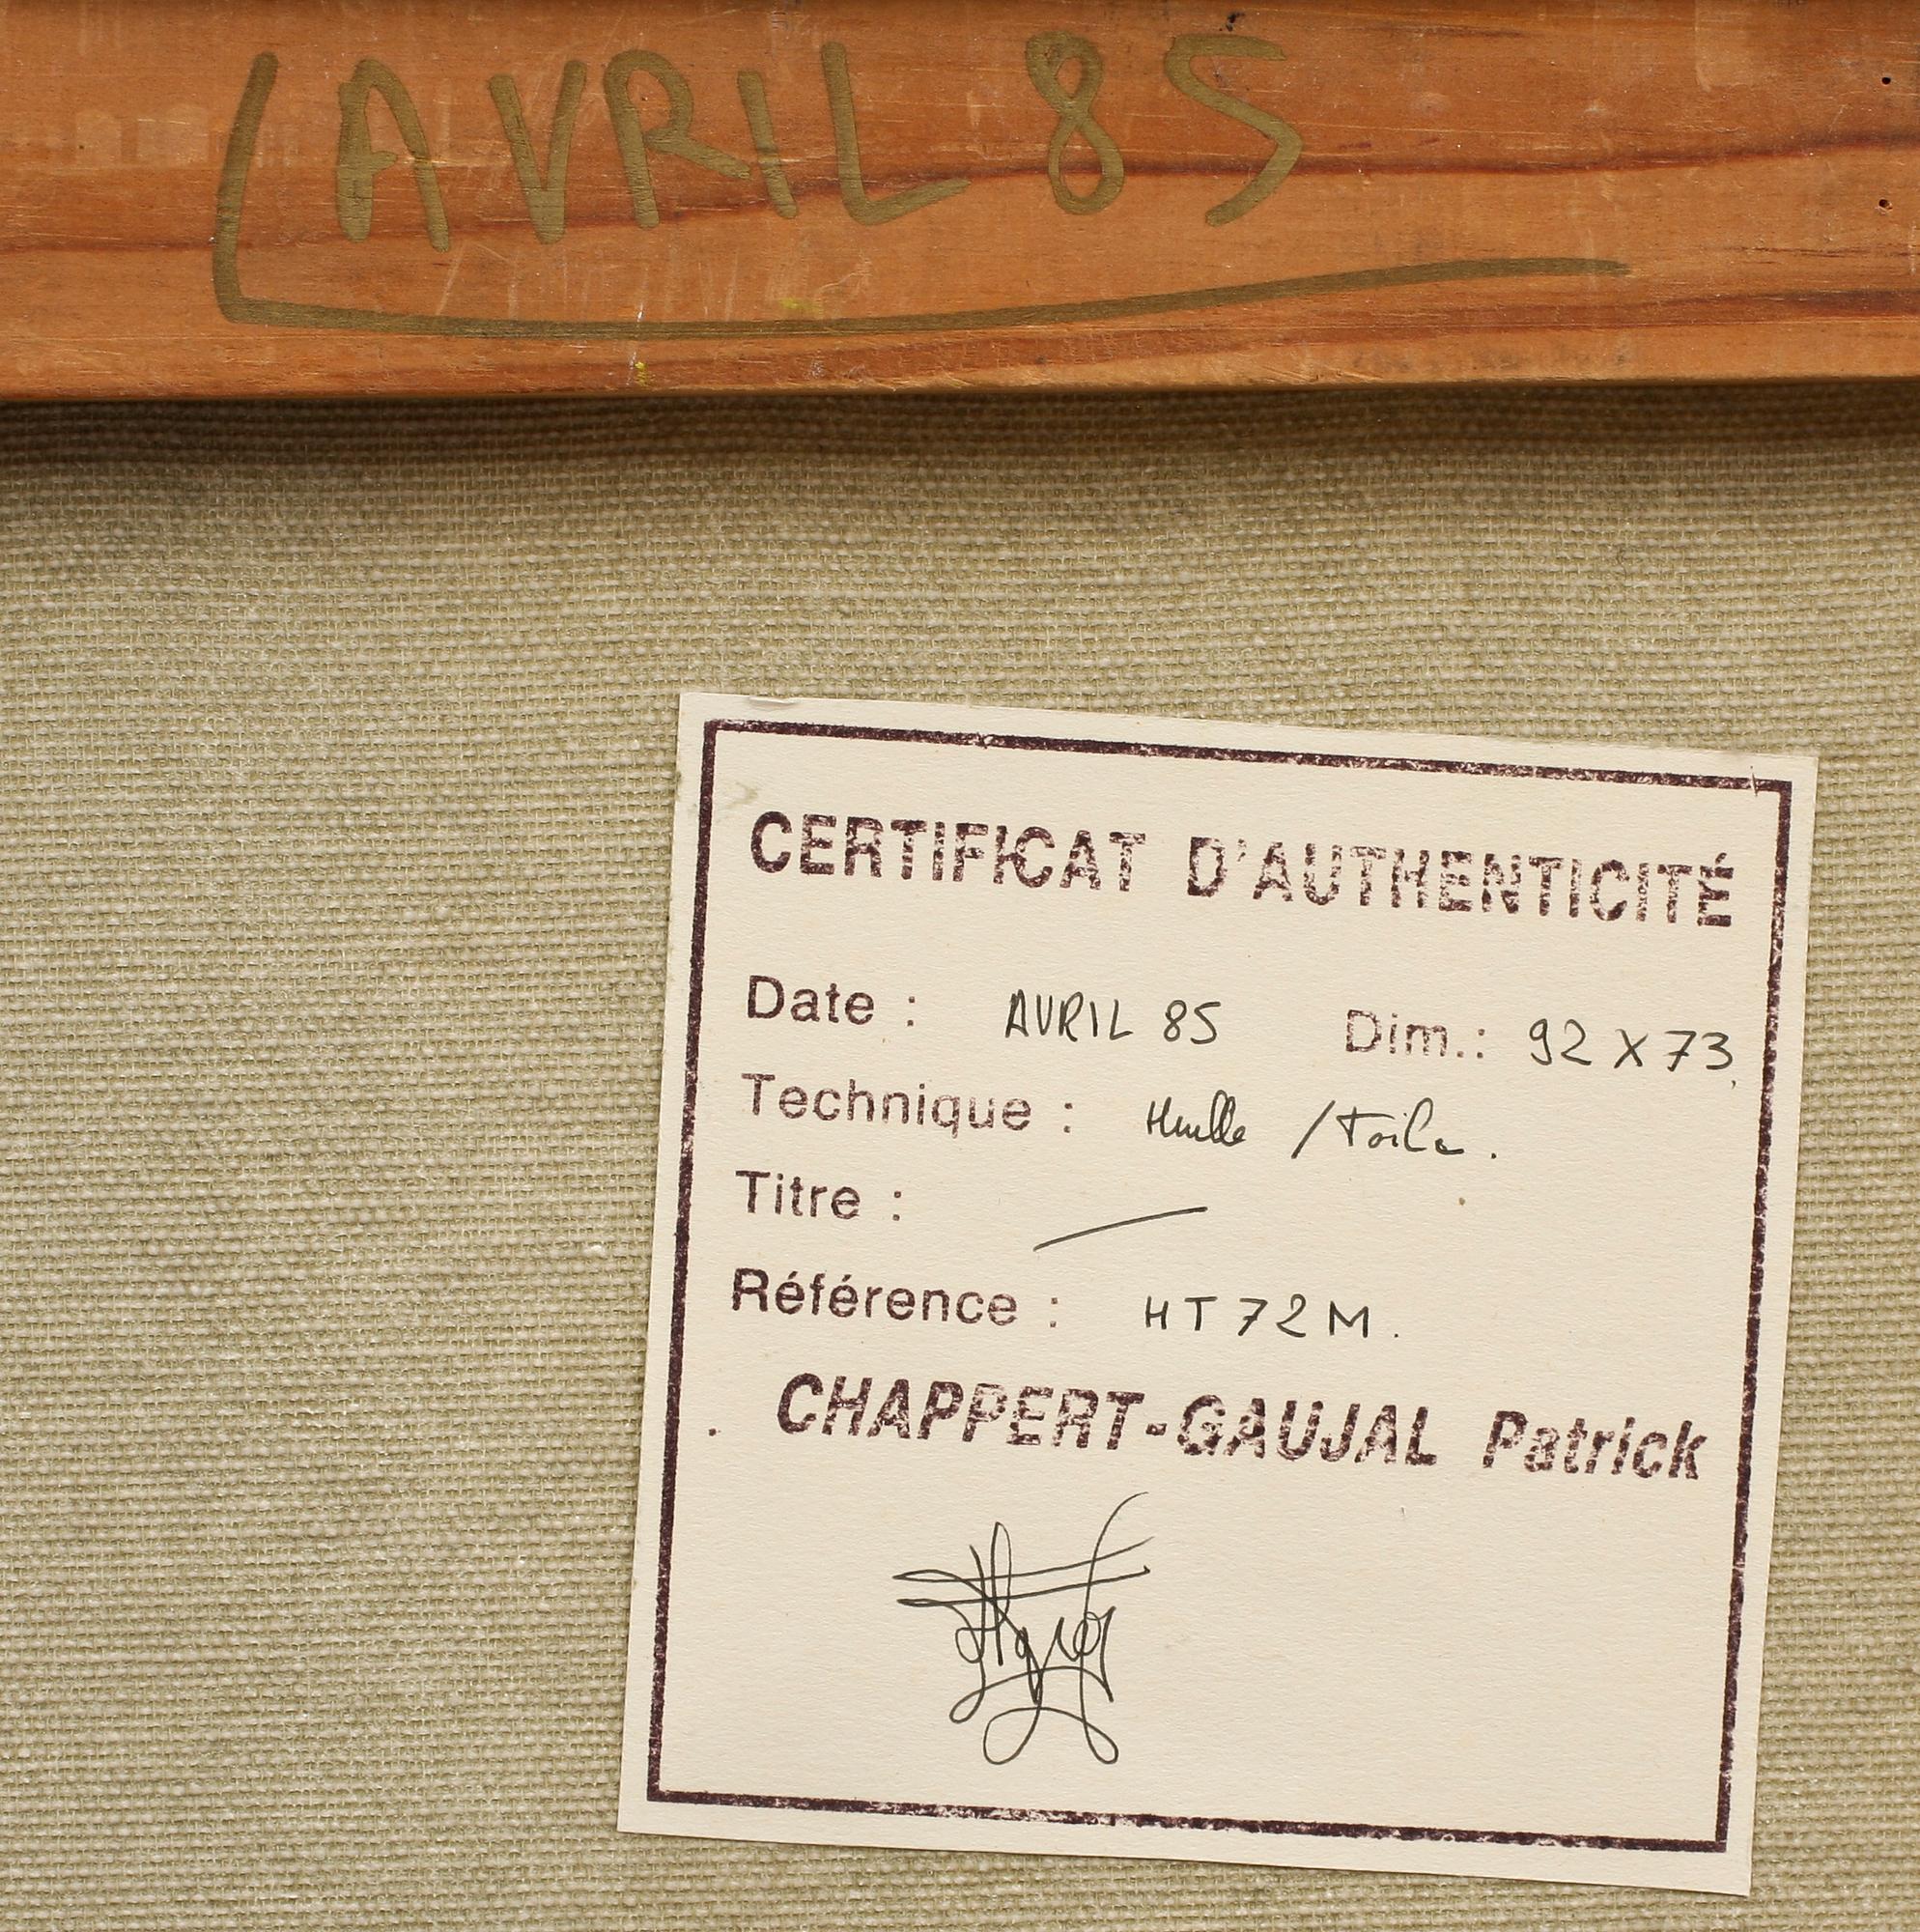 AVRIL 85
CERTIFICAT D'AUTHENTICITÉ
Date : AVRIL 85 Dim.: 92 X 73
Technique : Huile / Toile.
Titre : —
Référence : HT72M.
CHAPPERT-GAUJAL Patrick